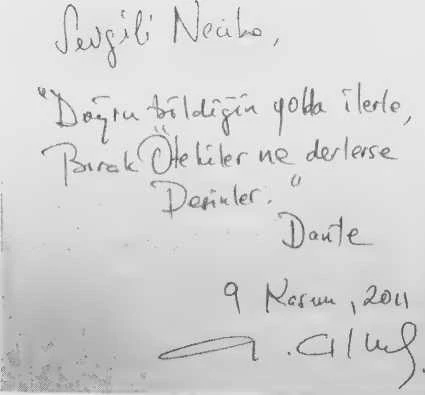 Sevgili Neciha,
"Doğru bildiğin yolda ilerle,
Bırak Ötekiler ne derlerse
Desinler."
Dante
9 Kasım, 2011